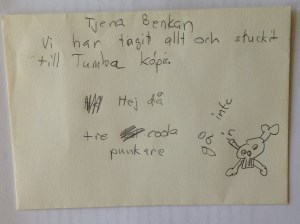 Tjena Benkan
Vi har tagit allt och stuckit
till Tumba köpc.
Hej då
tre coola
punkare
gå inte
in